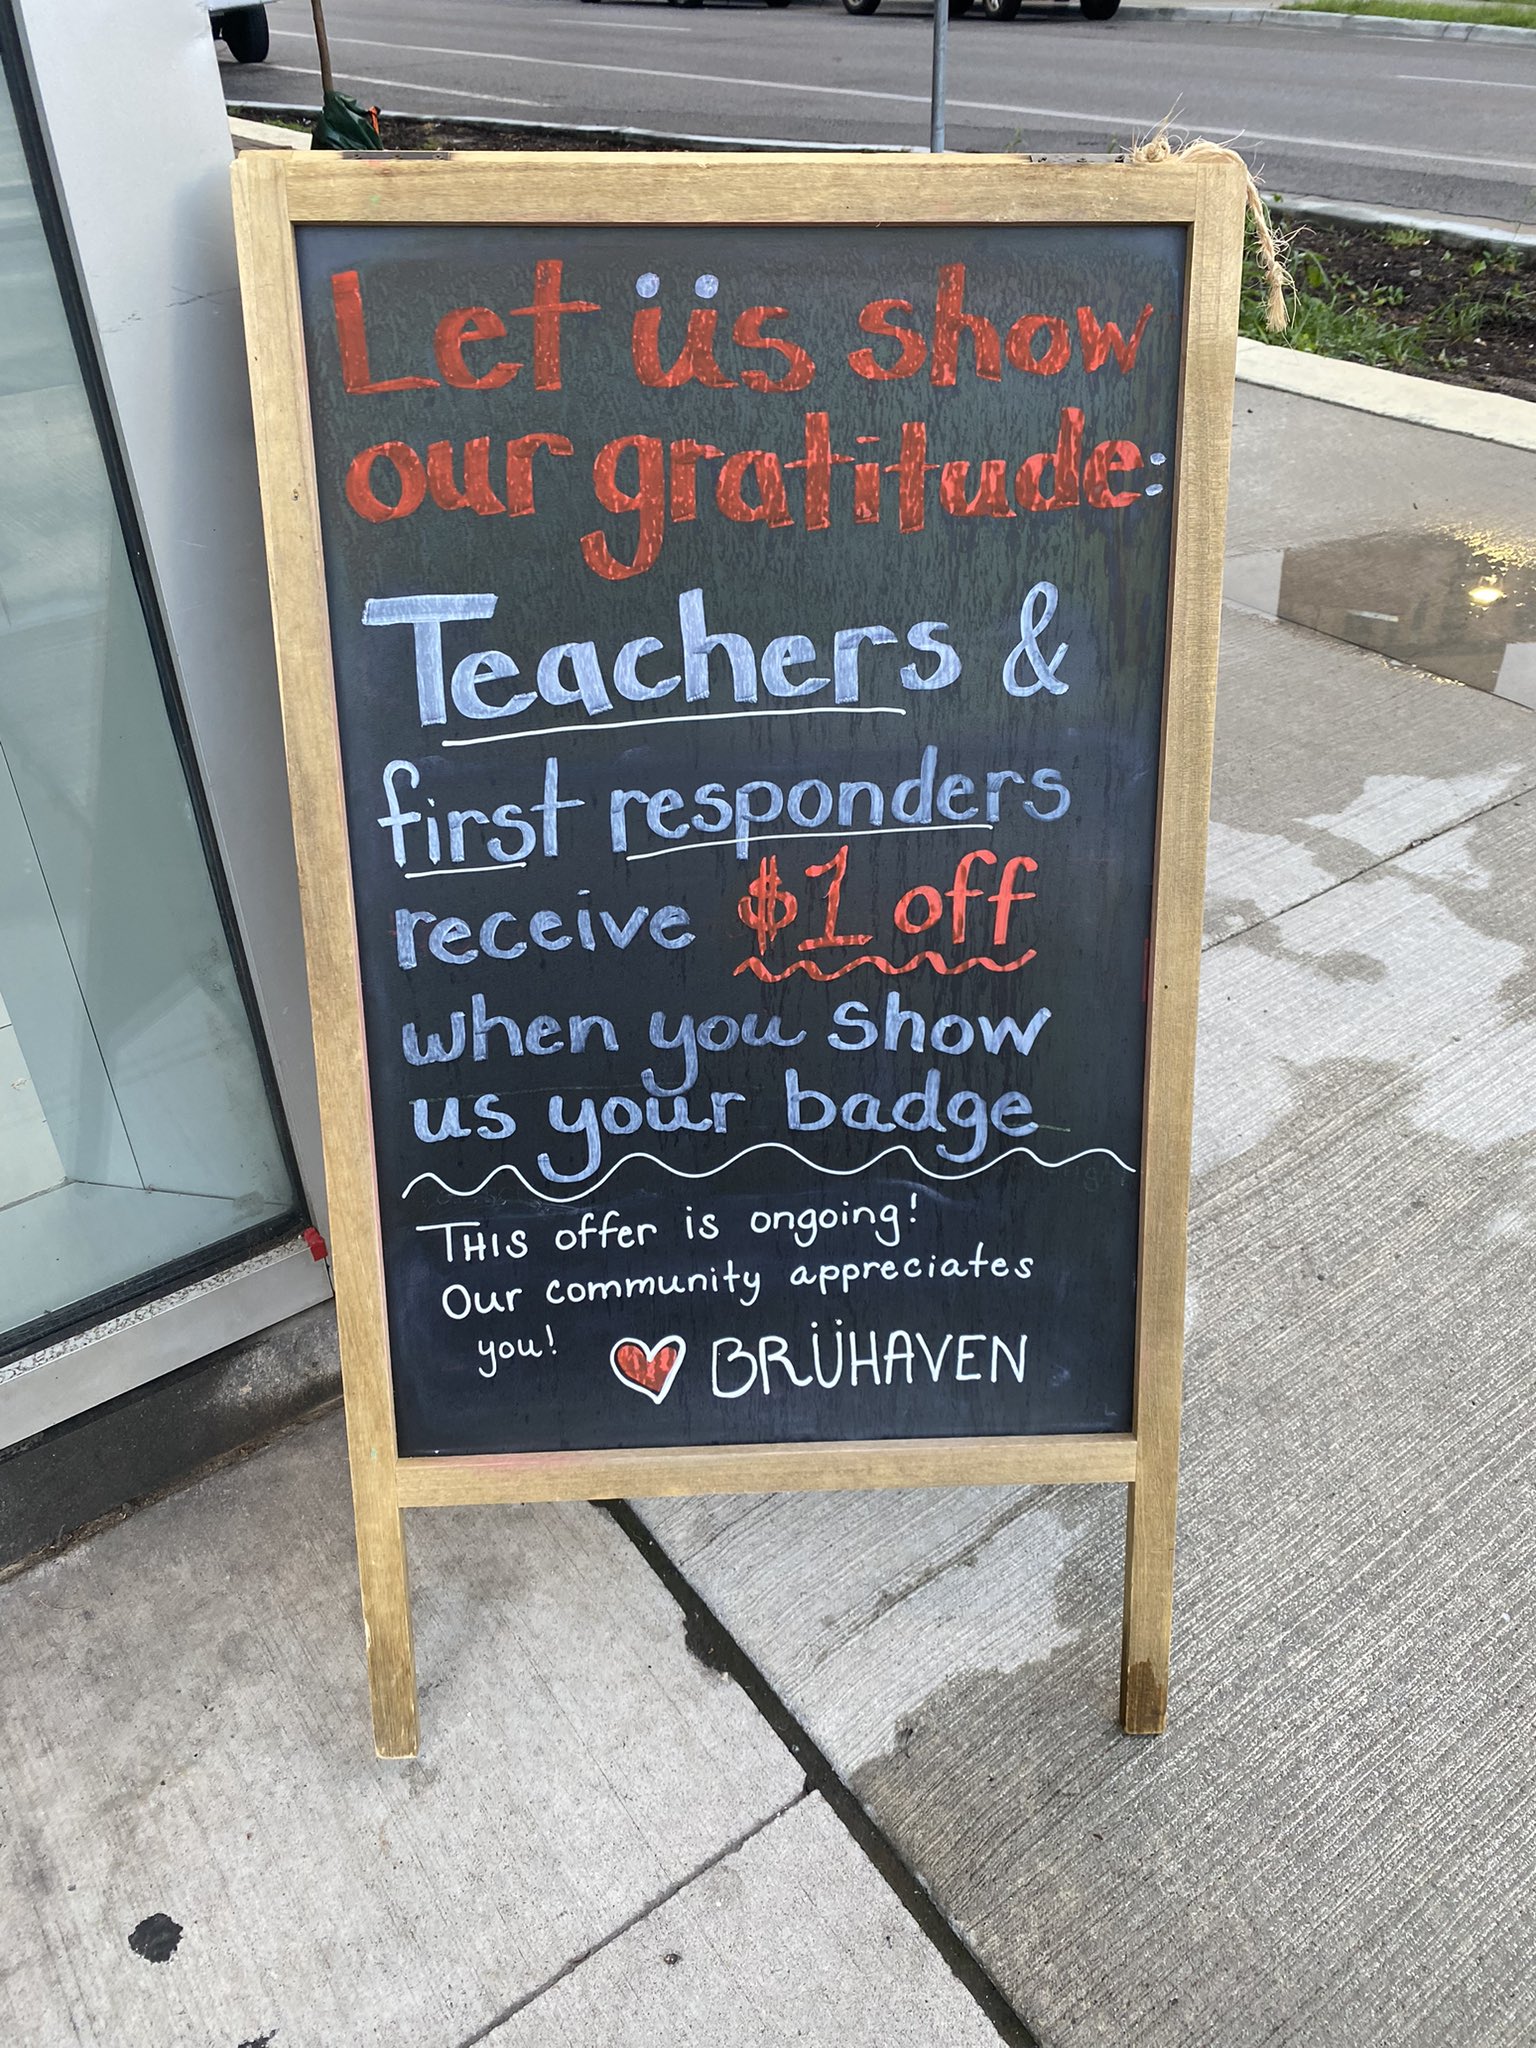 Let üs show
our gratitude:
Teachers &
first responders
receive $1 off
when you show
us your badge
THIS offer is ongoing!
Our community appreciates
you! ❤ BRÜHAVEN